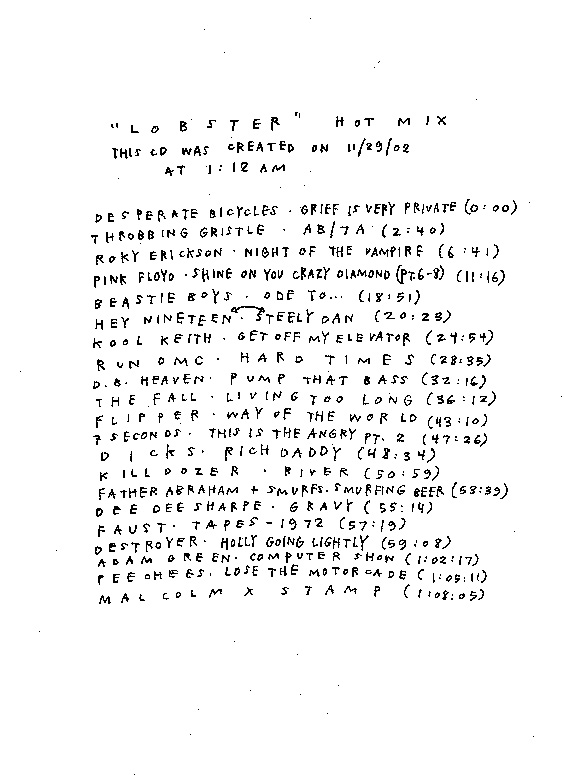 "LOBSTER" HOT MIX
THIS CD WAS CREATED ON 11/29/02
AT 1:12 AM
DESPERATE BICYCLES · GRIEF IS VERY PRIVATE (0:00)
THROBBING GRISTLE · AB/7A (2:40)
ROKY ERICKSON · NIGHT OF THE VAMPIRE (6:41)
PINK FLOYD · SHINE ON YOU CRAZY DIAMOND (PT.6-8) (11:16)
BEASTIE BOYS · ODE TO... (18:51)
HEY NINETEEN · STEELY DAN (20:23)
KOOL KEITH · GET OFF MY ELEVATOR (24:54)
RUN DMC · HARD TIMES (28:35)
D.B. HEAVEN · PUMP THAT BASS (32:16)
THE FALL · LIVING TOO LONG (36:12)
FLIPPER · WAY OF THE WORLD (43:10)
7 SECONDS · THIS IS THE ANGRY PT. 2 (47:26)
DICKS · RICH DADDY (48:34)
KILLDOZER · RIVER (50:59)
FATHER ABRAHAM + SMURFS · SMURFING BEER (53:39)
DEE DEE SHARPE · GRAVY (55:14)
FAUST · TAPES - 1972 (57:19)
DESTROYER · HOLLY GOING LIGHTLY (59:08)
ADAM GREEN · COMPUTER SHOW (1:02:17)
PEE CHEES · LOSE THE MOTORCADE (1:05:11)
MALCOLM X STAMP (1:08:05)